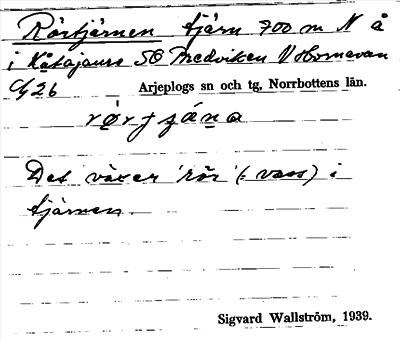 Rörtjärnen tjärn 700 m N å
i Kåtajaure SO Fredviken V Hornavan
26 Arjeplogs sn och tg, Norrbottens län.
Det växer 'rör' (: vass) i
tjärnen.
Sigvard Wallström, 1939.